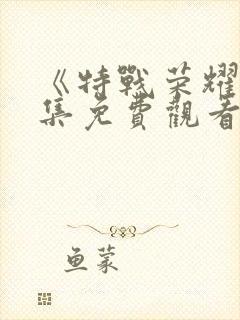 《特戰荣耀
集免費觀看
鱼蒙